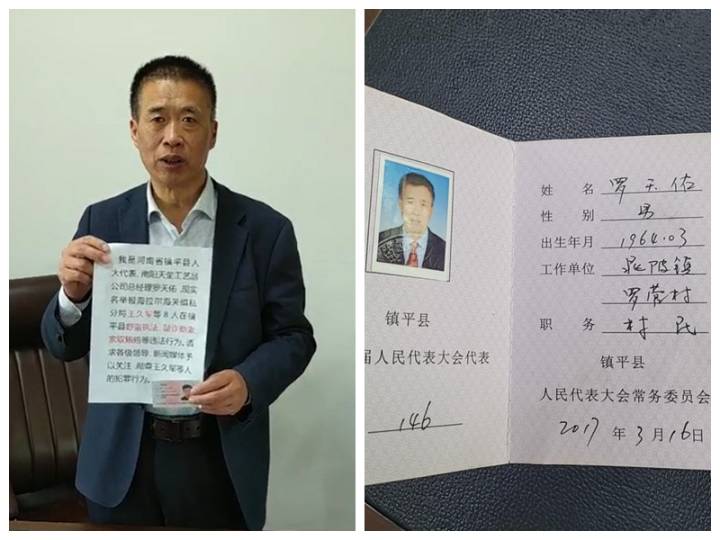 我是河南省镇平县人
大代表、南阳天玺工艺品
公司总经理罗天佑,现实
名举报海拉尔海关缉私
分局王久军等8人在镇
平县野蛮执法、敲诈勒索
索取贿赂等违法行为,请
求各级领导、新闻媒体予
以关注,彻查王久军等人
的犯罪行为。
镇平县
届人民代表大会代表
146
姓 名 罗天佑
性 别 男
出生年月 1964.03
工作单位 镇
罗营村
职 务 村民
镇平县
人民代表大会常务委员会
2017年3月16日